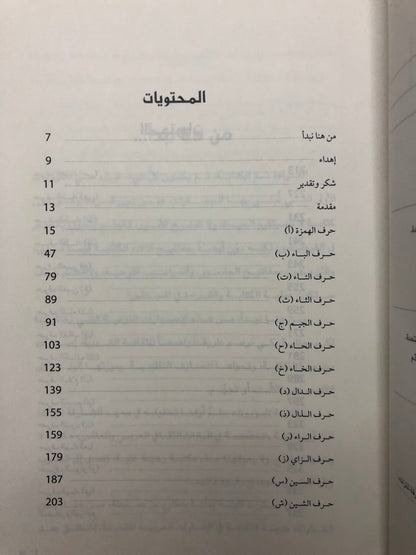 المحتويات
من هنا نبدأ 7
إهداء 9
شكر وتقدير 11
مقدمة 13
حرف الهمزة (أ) 15
حرف الباء (ب) 47
حرف التاء (ت) 79
حرف الثاء (ث) 89
حرف الجيم (ج) 91
حرف الحاء (ح) 103
حرف الخاء (خ) 123
حرف الدال (د) 139
حرف الذال (ذ) 155
حرف الراء (ر) 159
حرف الزاي (ز) 179
حرف السين (س) 187
حرف الشين (ش) 203